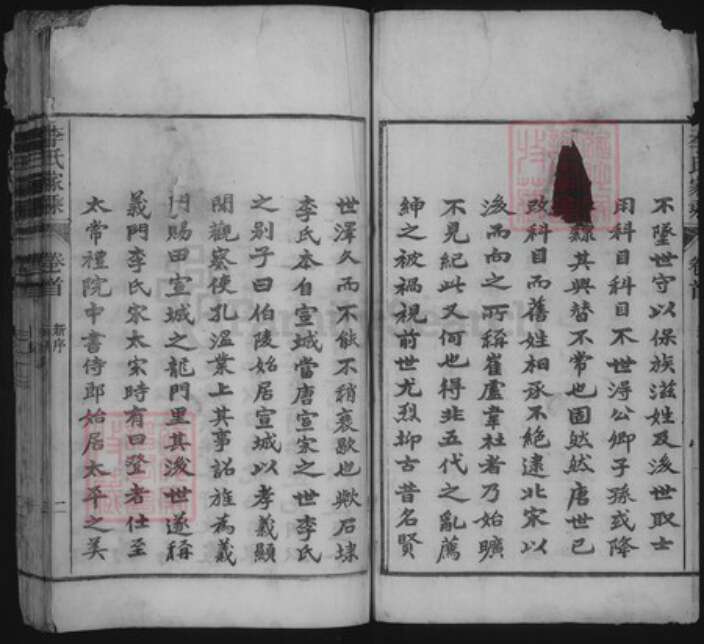 不墜世守以保族滋姓及後世取士
用科目科目不世得公卿子孫或降
隸其興替不常也固然然唐世已
改科目而舊姓相承不絕逮北宋以
後而向之所稱崔盧韋杜者乃始曠
不見紀此又何也得非五代之亂薦
紳之被禍視前世尤烈抑古昔名賢
世澤久而不能不稍衰歟也歟石埭
李氏本自宣城當唐宣宗之世李氏
之別子曰伯陵始居宣城以孝義顯
聞觀察使孔溫業上其事詔旌為義
門賜田宣城之龍門里其後世遂稱
義門李氏宋太宗時有曰登者仕至
太常禮院中書侍郎始居太平之美
李氏家乘
卷首
新序
二